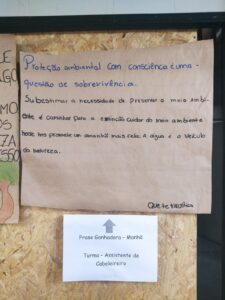 Proteção ambiental com consciência é uma
questão de sobrevivência.
Subestimar a necessidade de preservar o meio ambi-
ente é caminhar para a extinção cuidar do meio ambiente
hoje nos promete um amanhã mais feliz. A água é o veículo
da natureza.
Frase Ganhadora - Manhã
Turma - Assistente de
Cabeleireiro